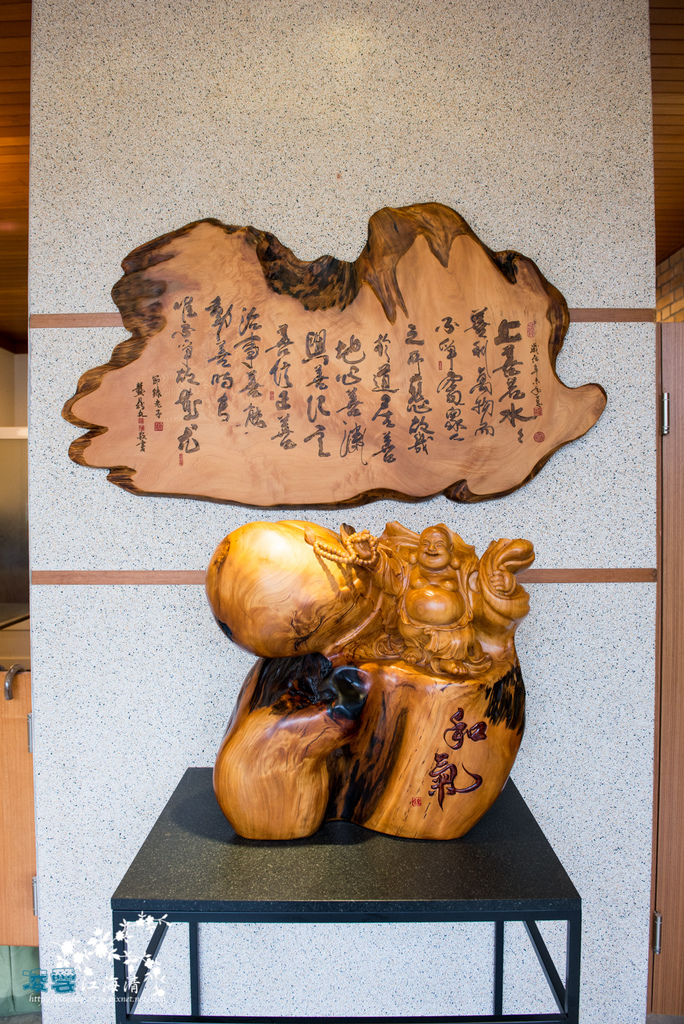 上善若水々
善利萬物而
不爭處眾人
之所惡故幾
於道居善
地心善淵
與善仁言
善信正善
治事善能
動善時夫
唯不爭故無尤
節錄老子
和氣